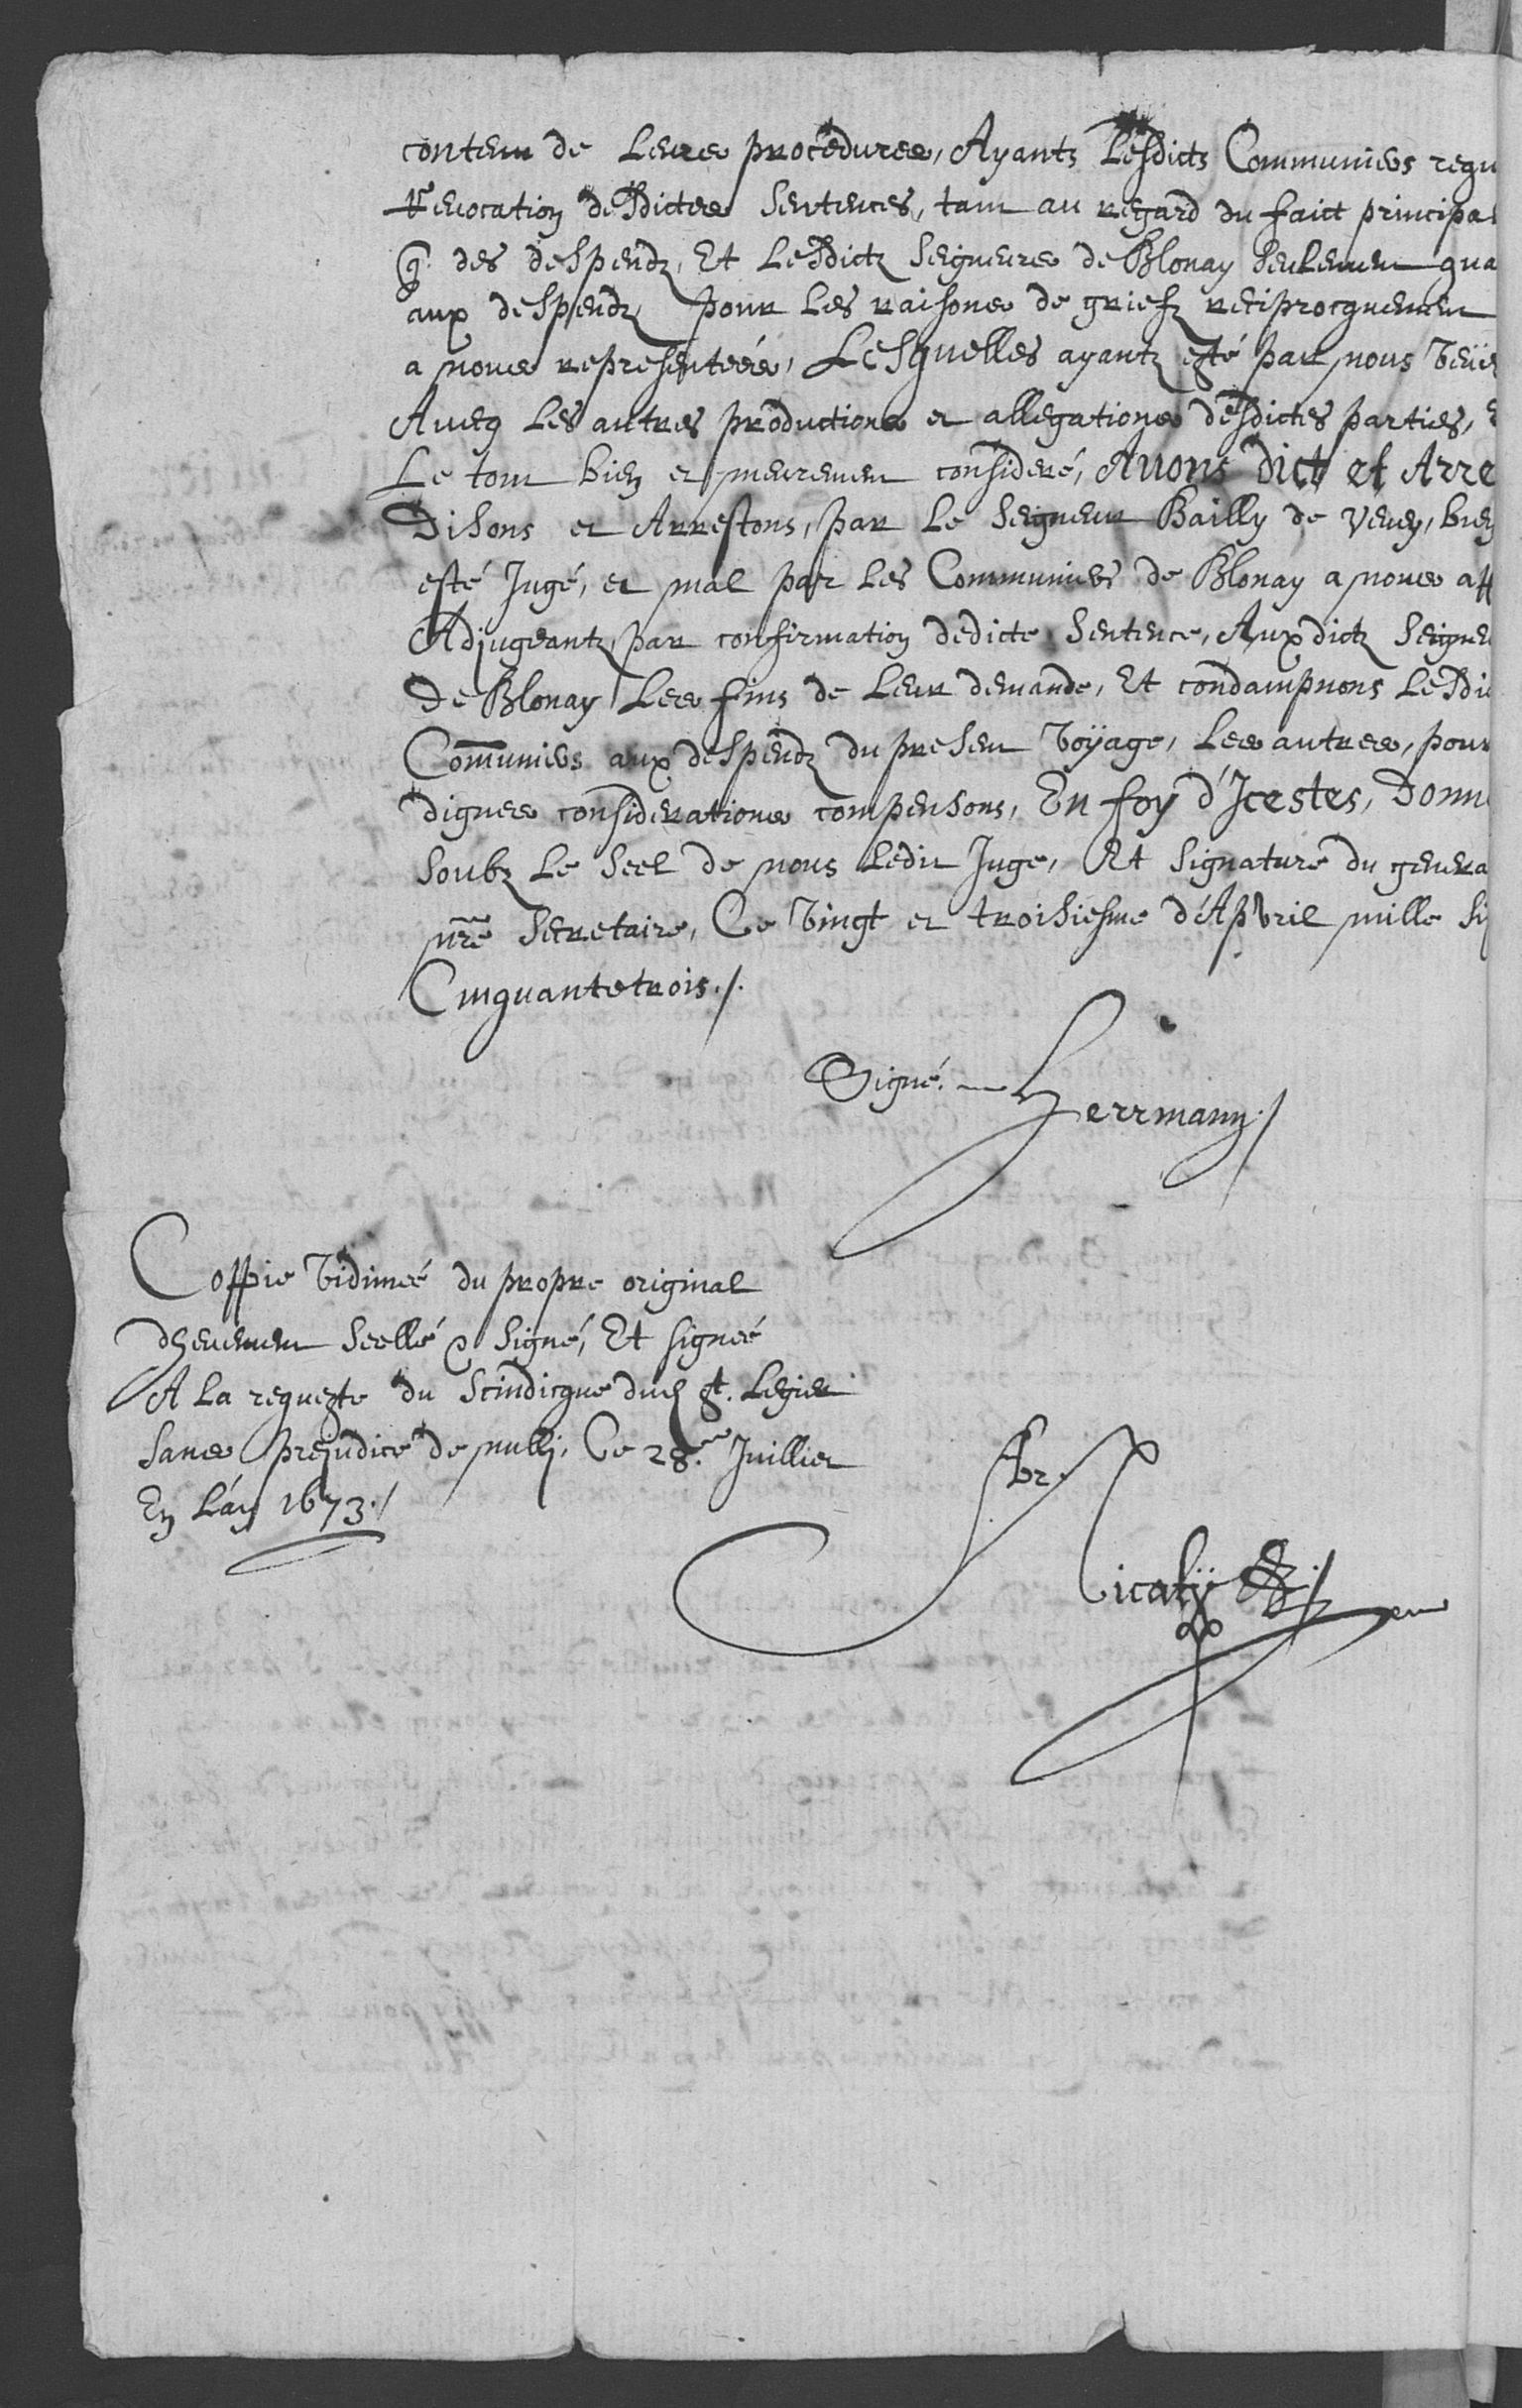 contenu de Leurs procedures, Ayants Lesdicts Communiers requ
Revocation desdictes Sentences, tant au regard du faict principa
q. des despendz, Et Lesdictz Seigneurs de Blonay seulement qua
aux despendz, pour Les raisons de griefz reciprocquement
a nous representées, Lesquelles ayantz esté par nous veües
Avecq Les autres productions et allegations desdictes parties, E
Le tout bien et meurement consideré, Avons Dict et Arre
Disons et Arrestons, par Le Seigneur Bailly de Vevey, bien
esté Jugé, et mal par Les Communiers de Blonay a nous app
Adjugeantz, par confirmation dedicte Sentence, Auxdictz Seigneu
De Blonay Les fins de Leur demande, Et condampnons Lesdi
Com̄uniers aux despendz du present voÿage, Les autres, pour
dignes considerations compensons, En foy d'Icestes, Donn
soubz Le Seel de nous ledit Juge, Et signature du genera
nr̃e Secretaire, Ce vingt et troisiesme d'Apvril mille si
Cinquantetrois./.
Signé. Herrmann./
Coppie vidimeé du propre original
dheuement Seellé & Signé, Et signeé
A La requeste du Scindicque dud St. Legier
Sans prejudice de nully, Ce 28.e Juillet
En L'an 1673./
Abr. Nicatÿ